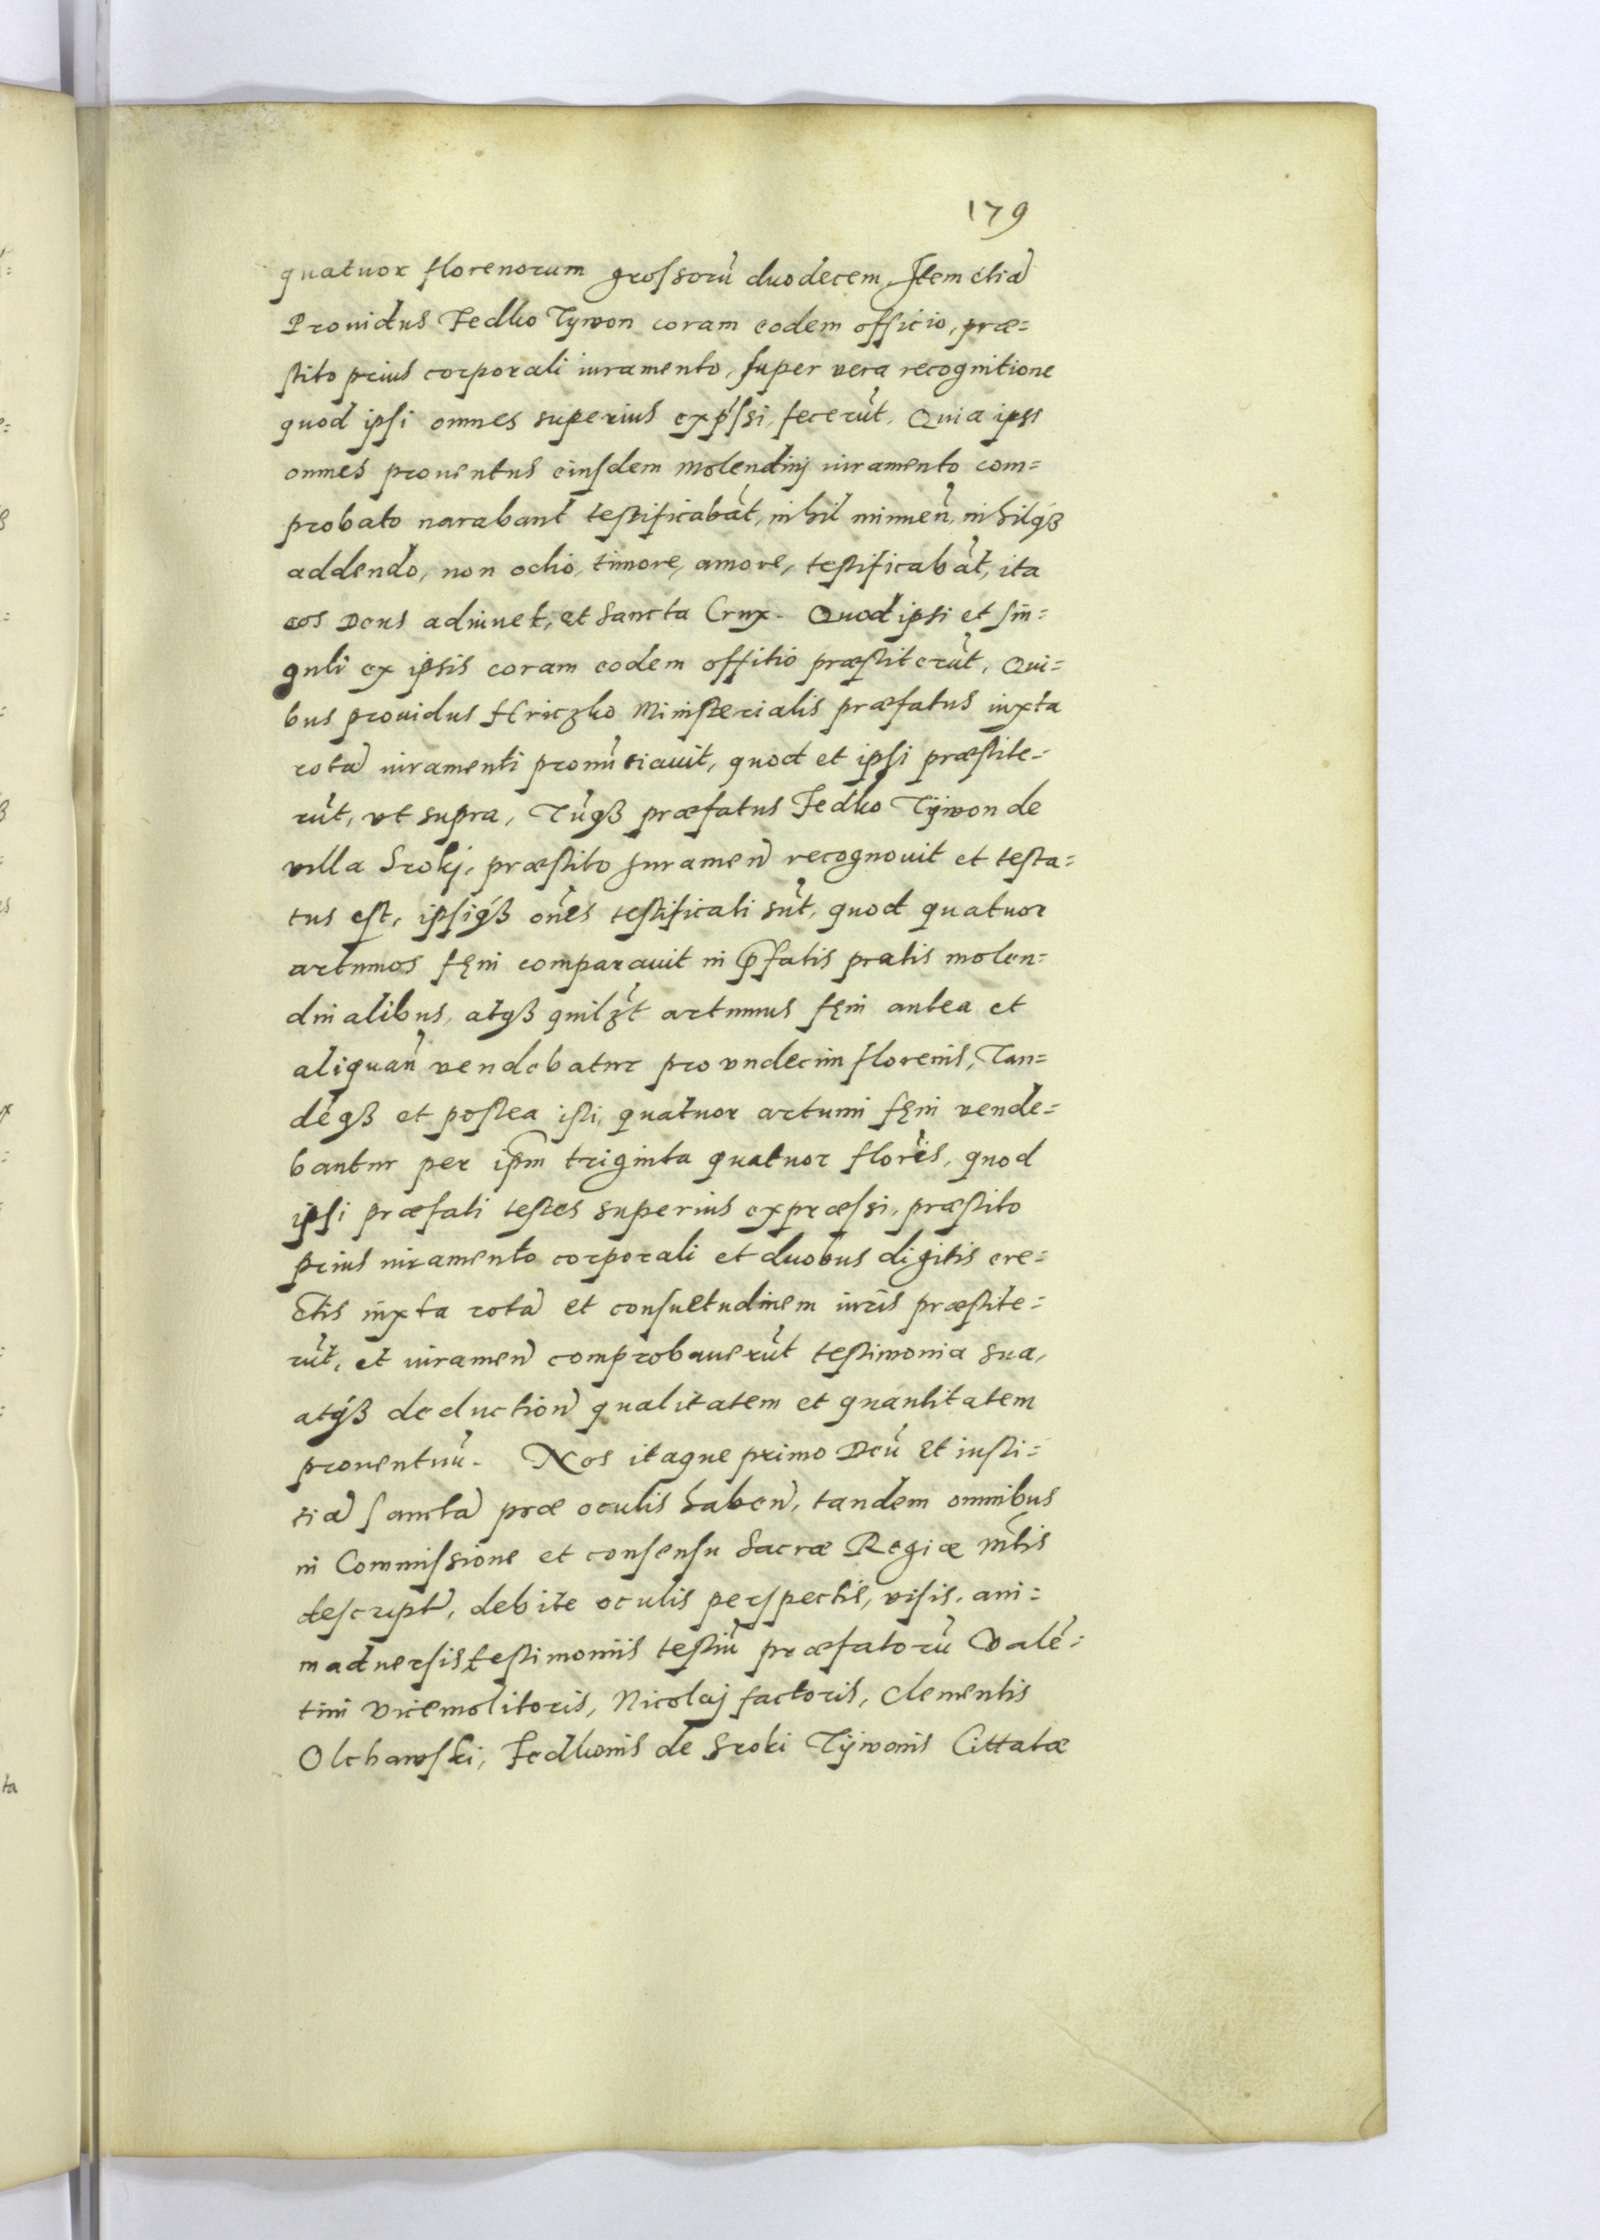 179
quatuor florenorum grossorũ duodecem, Item etiã
Prouidus Fedko Tywon coram eodem officio, præ=
stito prius corporali iuramento, super vera recognitione
quod ipsi omnes superius exp̃ssi, fecerũt, Quia ipsi
omnes prouentus eiusdem Molendinj iuramento com=
probato narabant testificabãt, nihil minuen̄, nihilqꝫ
addendo, non odio, timore, amore, testificabãt, ita
eos Deus adiuuet, et Sancta Crux. Quod ipsi et sin=
guli ex ipsis coram eodem offitio præstiterũt, Qui=
bus prouidus Hriczko Ministerialis præfatus iuxta
rotã iuramenti pronũtiauit, quod et ipsi præstite=
rũt, vt supra, Tũqꝫ præfatus Fedko Tÿwon de
villa Srokj, præstito Juramen̄ recognouit et testa=
tus est, ipsiqꝫ oẽs testificati sũt, quod quatuor
actumos fęni comparauit in p̄fatis pratis molen=
dinalibus, atqꝫ quilꝫt actumus fęni antea et
aliquan̄ vendebatur pro vndecim florenis, Tan=
dẽqꝫ et postea isti, quatuor actumi fęni vende=
bantur per ip̄m triginta quatuor florẽis, quod
ipsi præfati testes superius expræssi, præstito
prius iuramento corporali et duobus digitis ere=
ctis iuxta rotã et consuetudinem iuris præstite=
rũt, et iuramen̄ comprobauerũt testimonia sua,
atqꝫ deduction̄ qualitatem et quantitatem
prouentuũ. Nos itaque primo Deũ et iusti=
tiã Sanctã præ oculis haben̄, tandem omnibus
in Commissione et consensu Sacræ Regiæ Mt̄is
descript̄, debite oculis perspectis, visis, ani=
maduersis testimoniis testiũ præfatorũ Valẽ=
tini Vicemolitoris, Nicolaj factoris, Clementis
Olchawski, Fedkonis de Sroki Tÿwonis Cittatæ